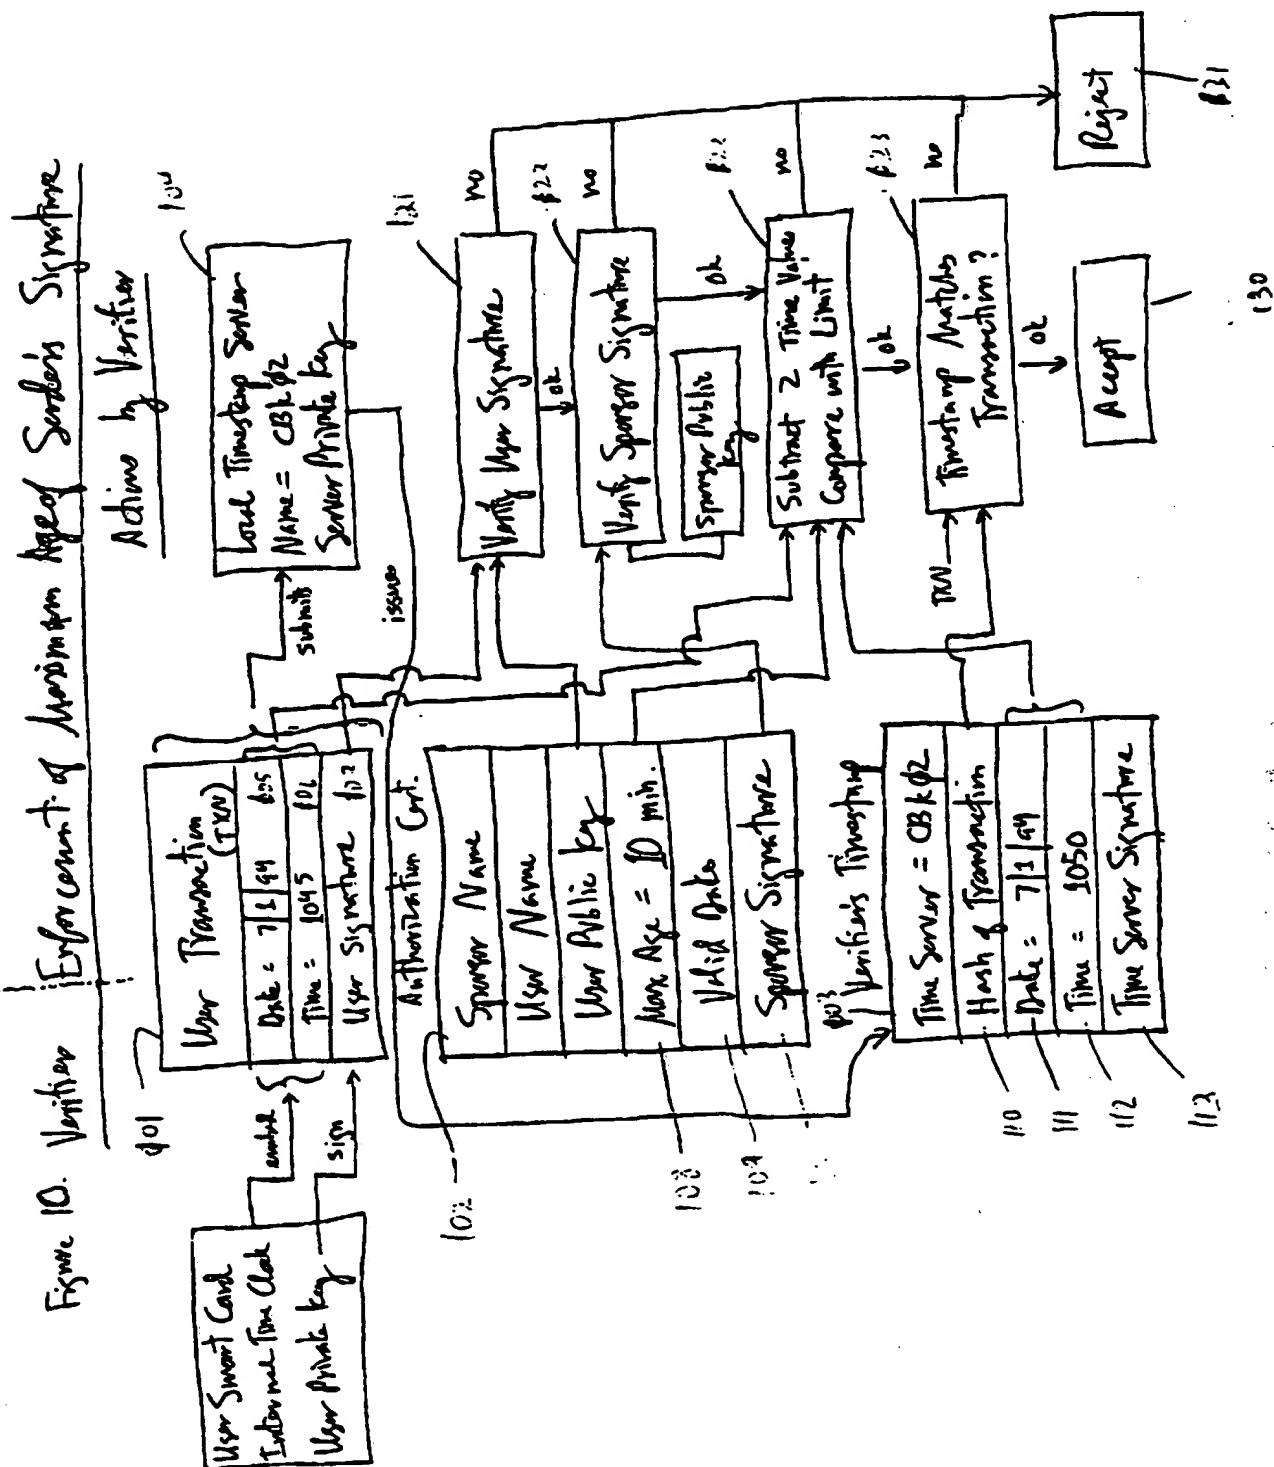 Figure 10. Verifier Enforcement of Maximum Age of Sender's Signature
Actions by Verifier
User Smart Card
Internal Time Clock
User Private key
embed
sign
101
User Transaction
(TXN)
Date = 7/1/94
Time = 1045
User Signature
submits
Local Timestamp Server
Name = CBK02
Server Private key
issues
102
Authorization Cert.
Sponsor Name
User Name
User Public key
Max Age = 10 min.
Valid Dates
Sponsor Signature
108
109
Verifier's Timestamp
Time Server = CBK02
Hash of Transaction
Date = 7/1/94
Time = 1050
Time Server Signature
110
111
112
113
121
Verify User Signature
no
ok
Verify Sponsor Signature
no
ok
Sponsor Public
key
Subtract 2 Time Values
Compare with Limit
no
ok
TXN
Timestamp Matches
Transaction?
123
no
ok
Accept
130
Reject
131